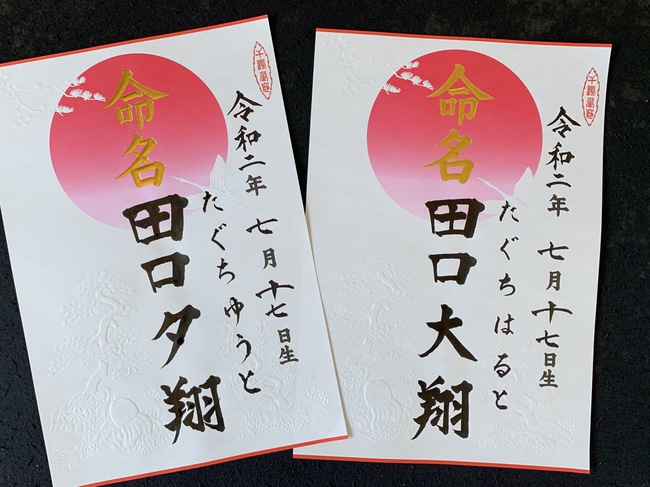 令和二年 七月十七日生
たぐちゆうと
命名 田口夕翔
令和二年 七月十七日生
たぐちはると
命名 田口大翔